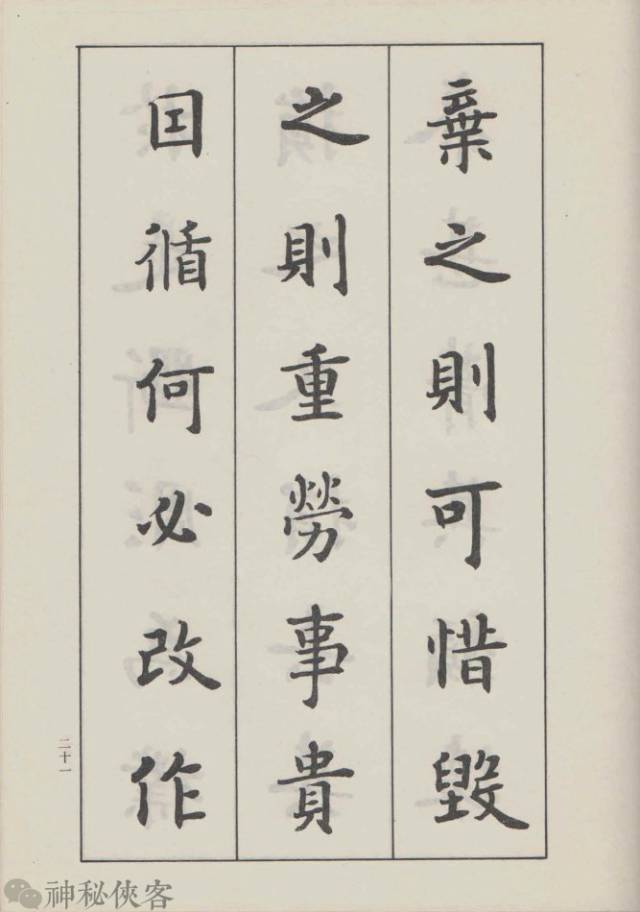 棄之則可惜毀
之則重勞事貴
囙循何必改作
二十一
神秘俠客